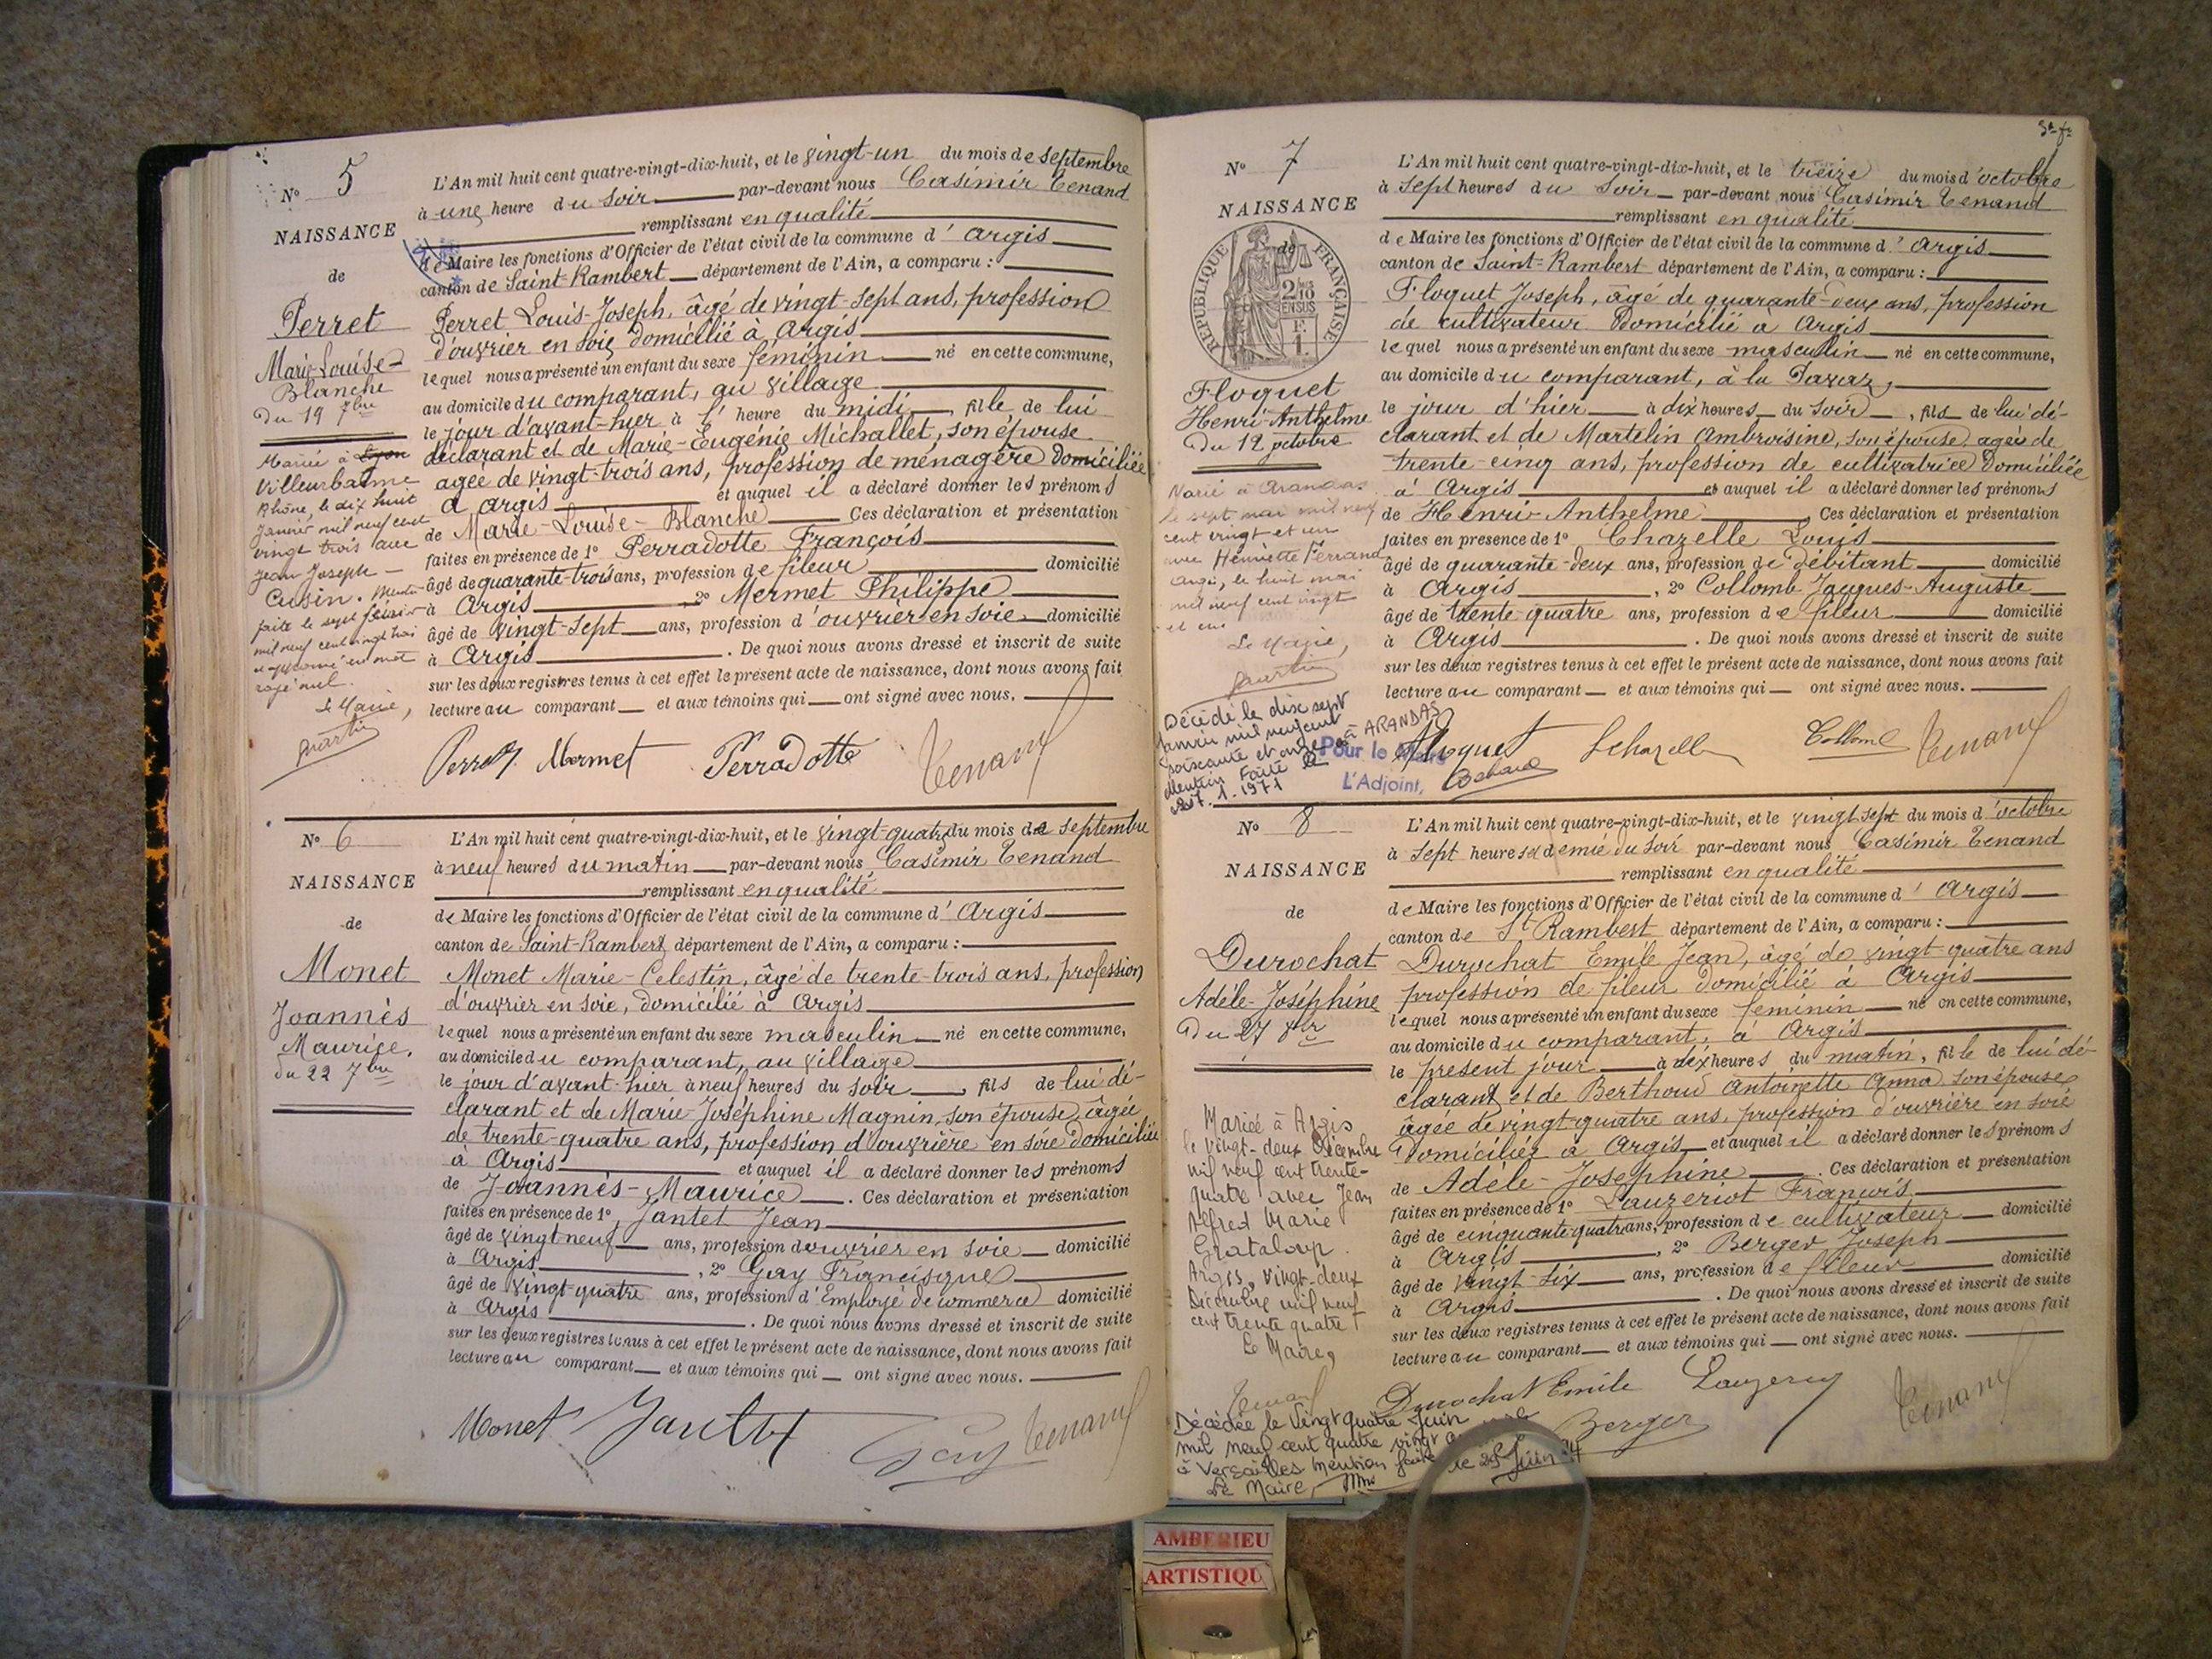 N° 5
NAISSANCE
de
Perret
Marie-Louise-
Blanche
Du 19 7bre
Mariée à Lyon
Villeurbanne
Rhône, le dix huit
Janvier mil neuf cent
vingt trois avec
Jean Joseph
Cusin. Mention
faite le sept février
mil neuf cent vingt trois
et approuvé un mot
rayé nul.
Le Maire,
Martin
L'An mil huit cent quatre-vingt-dix-huit, et le vingt-un du mois de septembre
à une heure du soir par-devant nous Casimir Tenand
remplissant en qualité
de Maire les fonctions d'Officier de l'état civil de la commune d'Argis
canton de Saint-Rambert département de l'Ain, a comparu :
Perret Louis-Joseph, âgé de vingt-sept ans, profession
d'ouvrier en soie, domicilié à Argis
lequel nous a présenté un enfant du sexe féminin né en cette commune,
au domicile du comparant, au village
le jour d'avant-hier à l'heure du midi, fille de lui
déclarant et de Marie-Eugénie Michallet, son épouse
agée de vingt-trois ans, profession de ménagère domiciliée
à Argis et auquel il a déclaré donner les prénoms
de Marie-Louise-Blanche Ces déclaration et présentation
faites en présence de 1° Perradotte François
âgé de quarante-trois ans, profession de fileur domicilié
à Argis, 2° Mermet Philippe
âgé de vingt-sept ans, profession d'ouvrier en soie domicilié
à Argis. De quoi nous avons dressé et inscrit de suite
sur les deux registres tenus à cet effet le présent acte de naissance, dont nous avons fait
lecture au comparant et aux témoins qui ont signé avec nous.
Perret Mermet Perradotte Tenand
N° 6
NAISSANCE
de
Monet
Joannès
Maurice.
du 22 7bre
L'An mil huit cent quatre-vingt-dix-huit, et le vingt-quatre du mois de septembre
à neuf heures du matin par-devant nous Casimir Tenand
remplissant en qualité
de Maire les fonctions d'Officier de l'état civil de la commune d'Argis
canton de Saint-Rambert département de l'Ain, a comparu :
Monet Marie-Celestin, âgé de trente-trois ans, profession
d'ouvrier en soie, domicilié à Argis
lequel nous a présenté un enfant du sexe masculin né en cette commune,
au domicile du comparant, au village
le jour d'avant-hier à neuf heures du soir, fils de lui dé-
clarant et de Marie Joséphine Magnin, son épouse, âgée
de trente-quatre ans, profession d'ouvrière en soie domiciliée
à Argis et auquel il a déclaré donner les prénoms
de Joannès-Maurice. Ces déclaration et présentation
faites en présence de 1°, Jantet Jean
âgé de vingt neuf ans, profession d'ouvrier en soie domicilié
à Argis, 2° Gay Francisque
âgé de vingt-quatre ans, profession d'Employé de commerce domicilié
à Argis. De quoi nous avons dressé et inscrit de suite
sur les deux registres tenus à cet effet le présent acte de naissance, dont nous avons fait
lecture au comparant et aux témoins qui ont signé avec nous.
Monet Jantet Gay Tenand
N° 7
NAISSANCE
de
REPUBLIQUE FRANÇAISE
Floquet
Henri-Anthelme
Du 12 octobre
Marié à Arandas
le sept mai mil neuf
cent vingt et un
avec Henriette Ferrand
Argis, le huit mai
mil neuf cent vingt
et un
Le Maire,
Martin
Décédé le dix sept
janvier mil neuf cent
soixante et onze à ARANDAS
Mention faite le
27.1.1971
Pour le Maire
L'Adjoint,
L'An mil huit cent quatre-vingt-dix-huit, et le treize du mois d'octobre
à sept heures du soir par-devant nous Casimir Tenand
remplissant en qualité
de Maire les fonctions d'Officier de l'état civil de la commune d'Argis
canton de Saint-Rambert département de l'Ain, a comparu :
Floquet Joseph, âgé de quarante-deux ans, profession
de cultivateur domicilié à Argis
lequel nous a présenté un enfant du sexe masculin né en cette commune,
au domicile du comparant, à la Paraz,
le jour d'hier à dix heures du soir, fils de lui dé-
clarant et de Martelin Ambroisine, son épouse, agée de
trente-cinq ans, profession de cultivatrice domiciliée
à Argis et auquel il a déclaré donner les prénoms
de Henri-Anthelme, Ces déclaration et présentation
faites en présence de 1° Chazelle Louis
âgé de quarante-deux ans, profession de débitant domicilié
à Argis, 2° Collomb Jacques-Auguste
âgé de trente-quatre ans, profession de fileur domicilié
à Argis. De quoi nous avons dressé et inscrit de suite
sur les deux registres tenus à cet effet le présent acte de naissance, dont nous avons fait
lecture au comparant et aux témoins qui ont signé avec nous.
Floquet Chazelle Collomb Tenand
N° 8
NAISSANCE
de
Durochat
Adèle-Joséphine
Du 27 8bre
Mariée à Argis
le vingt-deux Décembre
mil neuf cent trente-
quatre avec Jean
Alfred Marie
Grataloup.
Argis, vingt-deux
Décembre mil neuf
cent trente quatre
Le Maire,
Tenand
Décédée le Vingt quatre Juin
mil neuf cent quatre vingt
à Versailles Mention faite le 29 Juin
Le Maire,
L'An mil huit cent quatre-vingt-dix-huit, et le vingt sept du mois d'octobre
à sept heures et demie du soir par-devant nous Casimir Tenand
remplissant en qualité
de Maire les fonctions d'Officier de l'état civil de la commune d'Argis
canton de St Rambert département de l'Ain, a comparu :
Durochat Emile Jean, âgé de vingt-quatre ans
profession de fileur domicilié à Argis
lequel nous a présenté un enfant du sexe féminin né en cette commune,
au domicile du comparant, à Argis
le présent jour à dix heures du matin, fille de lui dé-
clarant et de Berthoud Antoinette Anna son épouse
âgée de vingt-quatre ans, profession d'ouvrière en soie
Domiciliée à Argis et auquel il a déclaré donner les prénoms
de Adèle-Joséphine. Ces déclaration et présentation
faites en présence de 1° Lauzeriot François
âgé de cinquante-quatre ans, profession de cultivateur domicilié
à Argis, 2° Berger Joseph
âgé de vingt-six ans, profession de fileur domicilié
à Argis. De quoi nous avons dressé et inscrit de suite
sur les deux registres tenus à cet effet le présent acte de naissance, dont nous avons fait
lecture au comparant et aux témoins qui ont signé avec nous.
Durochat Emile Berger Tenand
AMBERIEU
ARTISTIQU